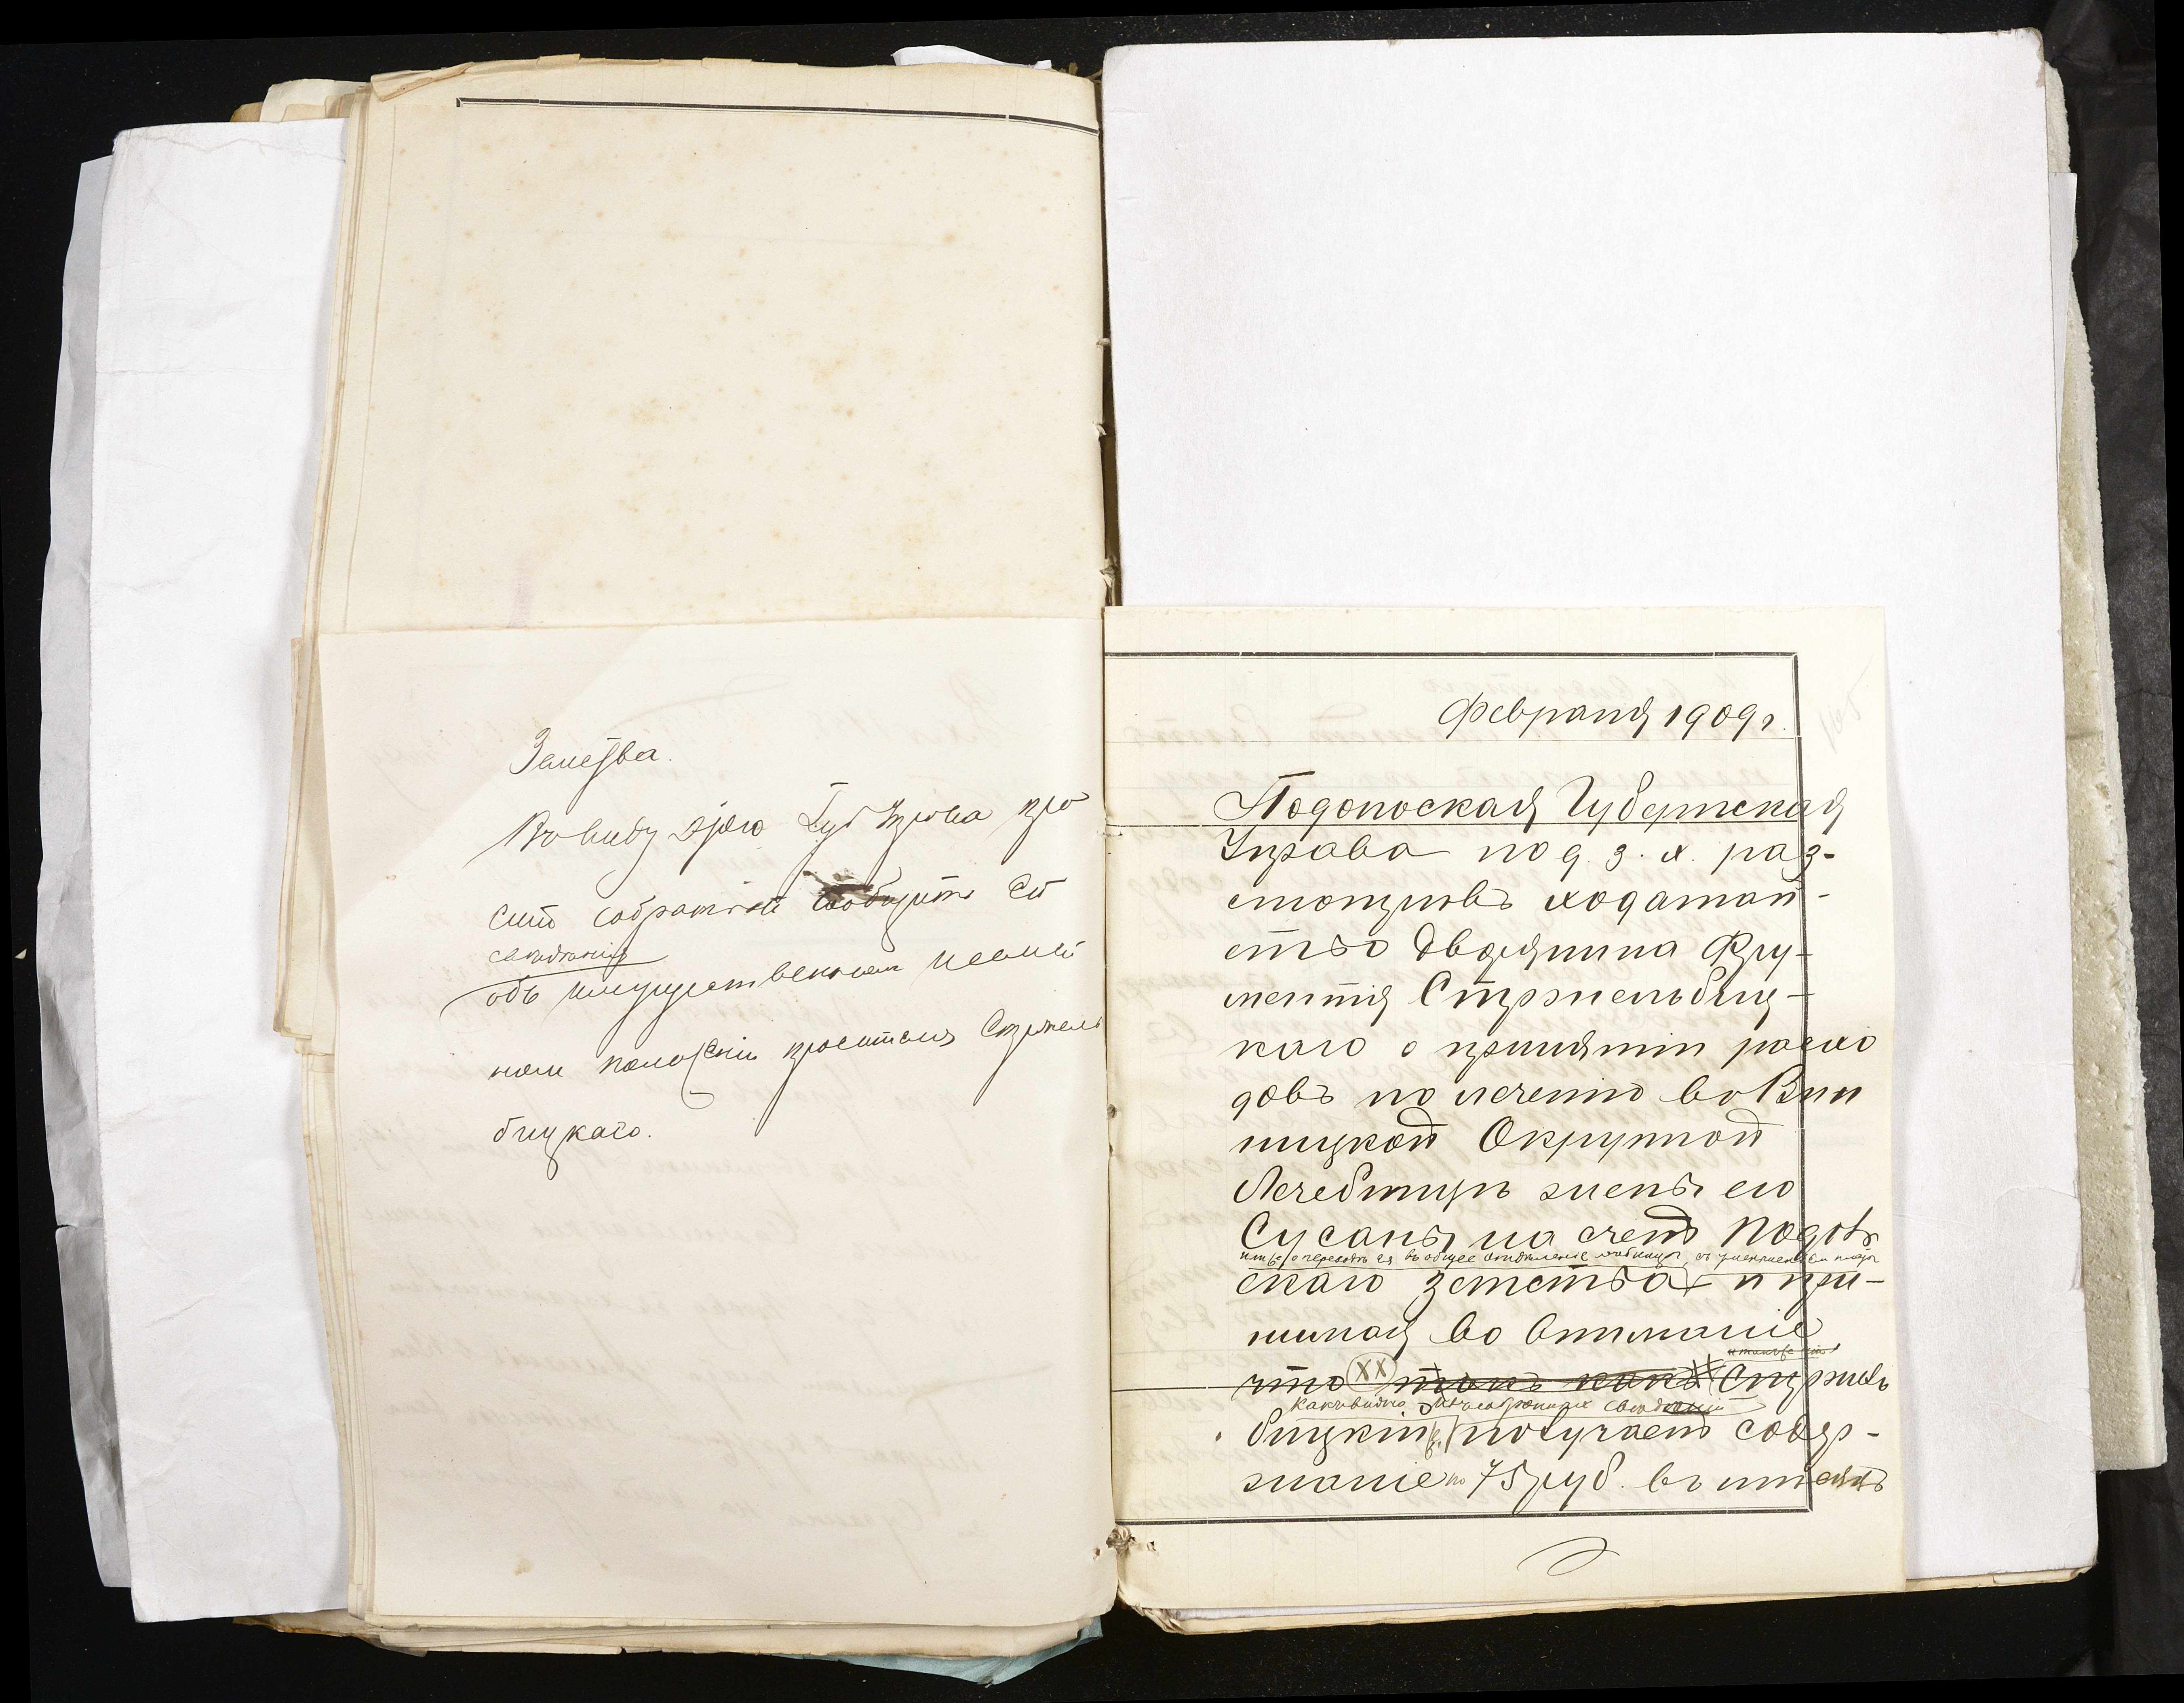 Земства.
Въ виду этого Губ Управа про
ситъ собрать и сообщить ей
сведения
объ имущественномъ
номъ положеніи просителя Стржель
бицкаго.
Февраля 1909 г.
Подольская Губернская
Управа по д. з. х. раз-
смотрѣвъ ходатай-
ство дворянина
Стржельбиц-
каго о принятіи расхо
довъ по леченію въ Вин
ницкой Окружной
Лечебницѣ жены его
Сусаны на счетъ Подоль
скаго земства и при-
нимая во вниманіе
что XX такъ какъ Стржель
какъ видно изъ собранныхъ сведѣній
бицкій получаетъ содер-
жаніе по 75 руб. въ мѣсяцъ